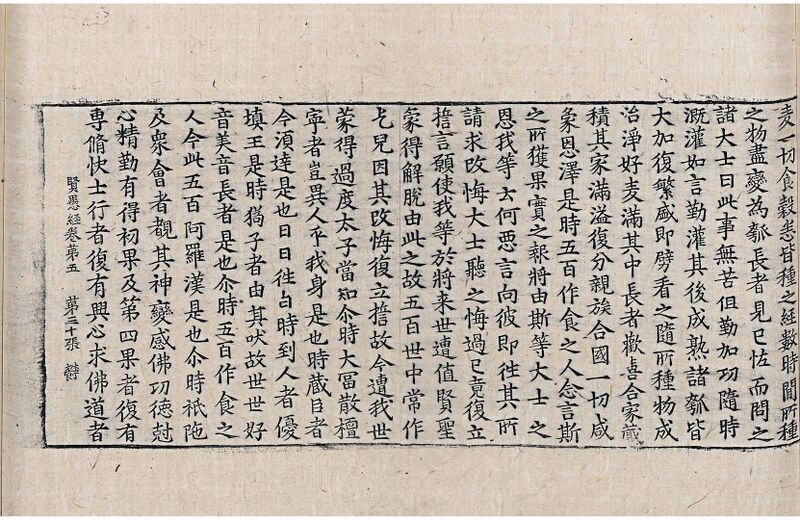 麦一切食穀悉皆種之経數時間所種
之物盡變為瓠長者見已恠而問之
諸大士曰此事無苦但勤加功隨時
溉灌如言勤灌其後成熟諸瓠皆
大加復繁盛即劈看之隨所種物成
治淨好麦滿其中長者歡喜合家藏
積其家滿溢復分親族合國一切咸
蒙恩澤是時五百作食之人念言斯
之所獲果實之報將由斯等大士之
恩我等云何惡言向彼即往其所
請求改悔大士聽之悔過已竟復立
擔言願使我等於將来世遭值賢聖
蒙得解脫由此之故五百世中常作
乞兒因其改悔復立擔故今遭我世
蒙得過度太子當知尒時大冨散檀
寧者豈異人乎我身是也時藏臣者
今須達是也日日往白時到人者優
填王是時猧子者由其吠故世世好
音美音長者是也尒時五百作食之
人今此五百阿羅漢是也尒時祇陁
及衆會者覩其神變感佛功德尅
心精勤有得初果及第四果者復有
專脩快士行者復有興心求佛道者
賢愚経卷第五 第三十張 欝